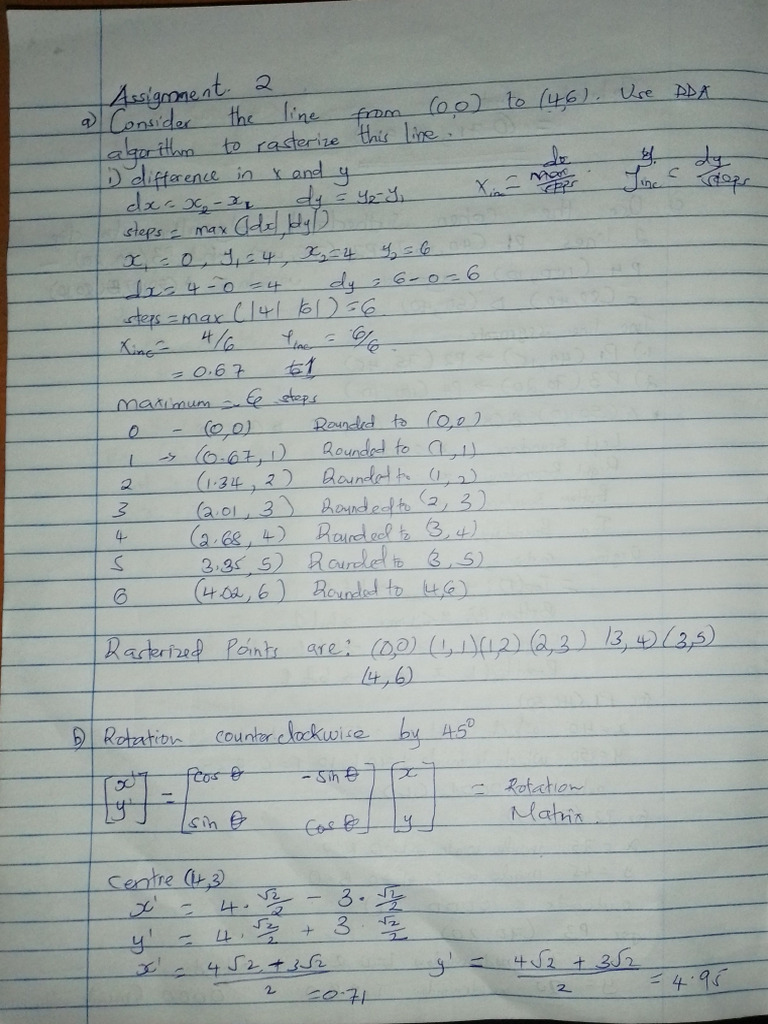 Assignment. 2
a) Consider the line from (0,0) to (4,6). Use DDA
algorithm to rasterize this line.
i) difference in x and y
dx = x₂ - x₁ dy = y₂ - y₁
x_inc = dx/steps. y_inc = dy/steps
steps = max(|dx|,|dy|)
x₁ = 0, y₁ = 4, x₂ = 4 y₂ = 6
dx = 4 - 0 = 4 dy = 6 - 0 = 6
steps = max (|4| |6|) = 6
x_inc = 4/6 Y_inc = 6/6.
= 0.67 = 1
maximum = 6 steps
0 - (0,0) Rounded to (0,0)
1 → (0.67, 1) Rounded to (1,1)
2 (1.34, 2) Rounded to (1,2)
3 (2.01, 3) Rounded to (2, 3)
4 (2.68, 4) Rounded to (3, 4)
5 3.35, 5) Rounded to (3, 5)
6 (4.02, 6) Rounded to (4,6)
Rasterized Points are: (0,0) (1,1) (1,2) (2,3) (3,4) (3,5)
(4,6)
b) Rotation counterclockwise by 45°
[x' y'] = [cos θ -sin θ
sin θ cos θ] [x y] = Rotation Matrix.
Centre (4,3)
x' = 4 · √2/2 - 3 · √2/2
y' = 4 · √2/2 + 3 · √2/2
x' = 4√2 + 3√2 / 2 = 0.71 y' = 4√2 + 3√2 / 2 = 4.95